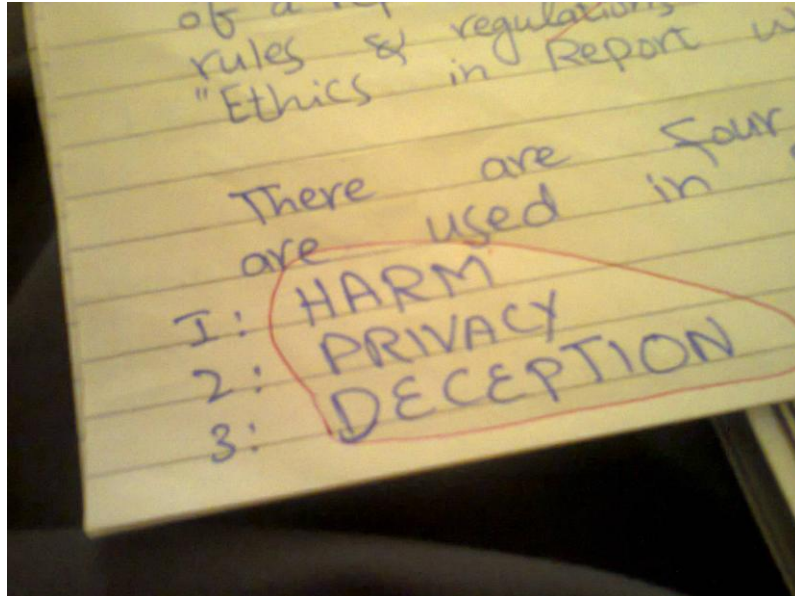 of a
rules & regulations
"Ethics in Report
There are four
are used in
I: HARM
2: PRIVACY
3: DECEPTION